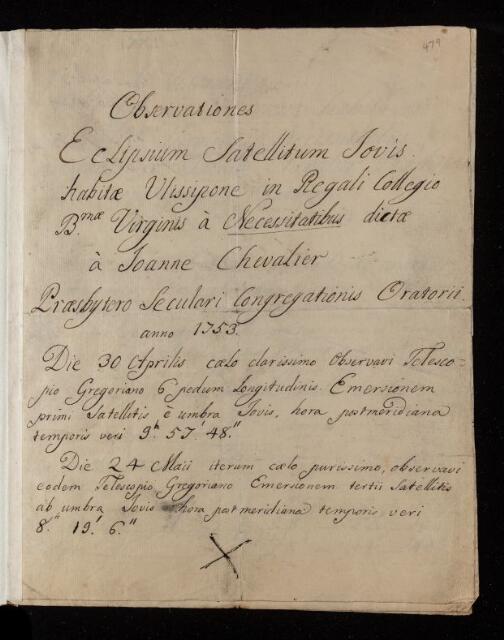 479
Observationes
Eclipsium Satellitum Jovis
habitæ Ulissipone in Regali Collegio
B.mæ Virginis à Necessitatibus dictæ
à Joanne Chevalier
Præsbytero Seculari Congregationis Oratorii.
anno 1753.
Die 30 Aprilis cælo clarissimo observavi Telesco-
pio Gregoriano 6 pedum Longitudinis Emersionem
primi Satellitis è umbra Jovis, hora postmeridiana
temporis veri 9.h 57.' 48."
Die 24 Maii iterum cælo purissimo, observavi
eodem Telescopio Gregoriano Emersionem tertii Satellitis
ab umbra Jovis hora postmeridiana temporis veri
8.h 19.' 6."